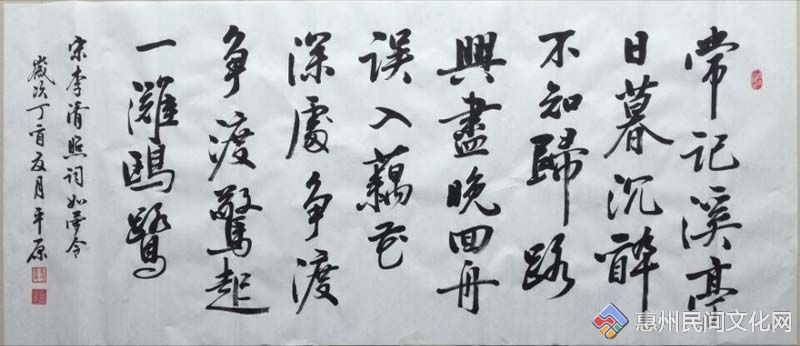 常记溪亭
日暮沉醉
不知歸路
興盡晚回舟
误入藕花
深處争渡
争渡驚起
一灘鷗鷺
宋李清照词如夢令
嵗次丁酉夏月平原
惠州民间文化网